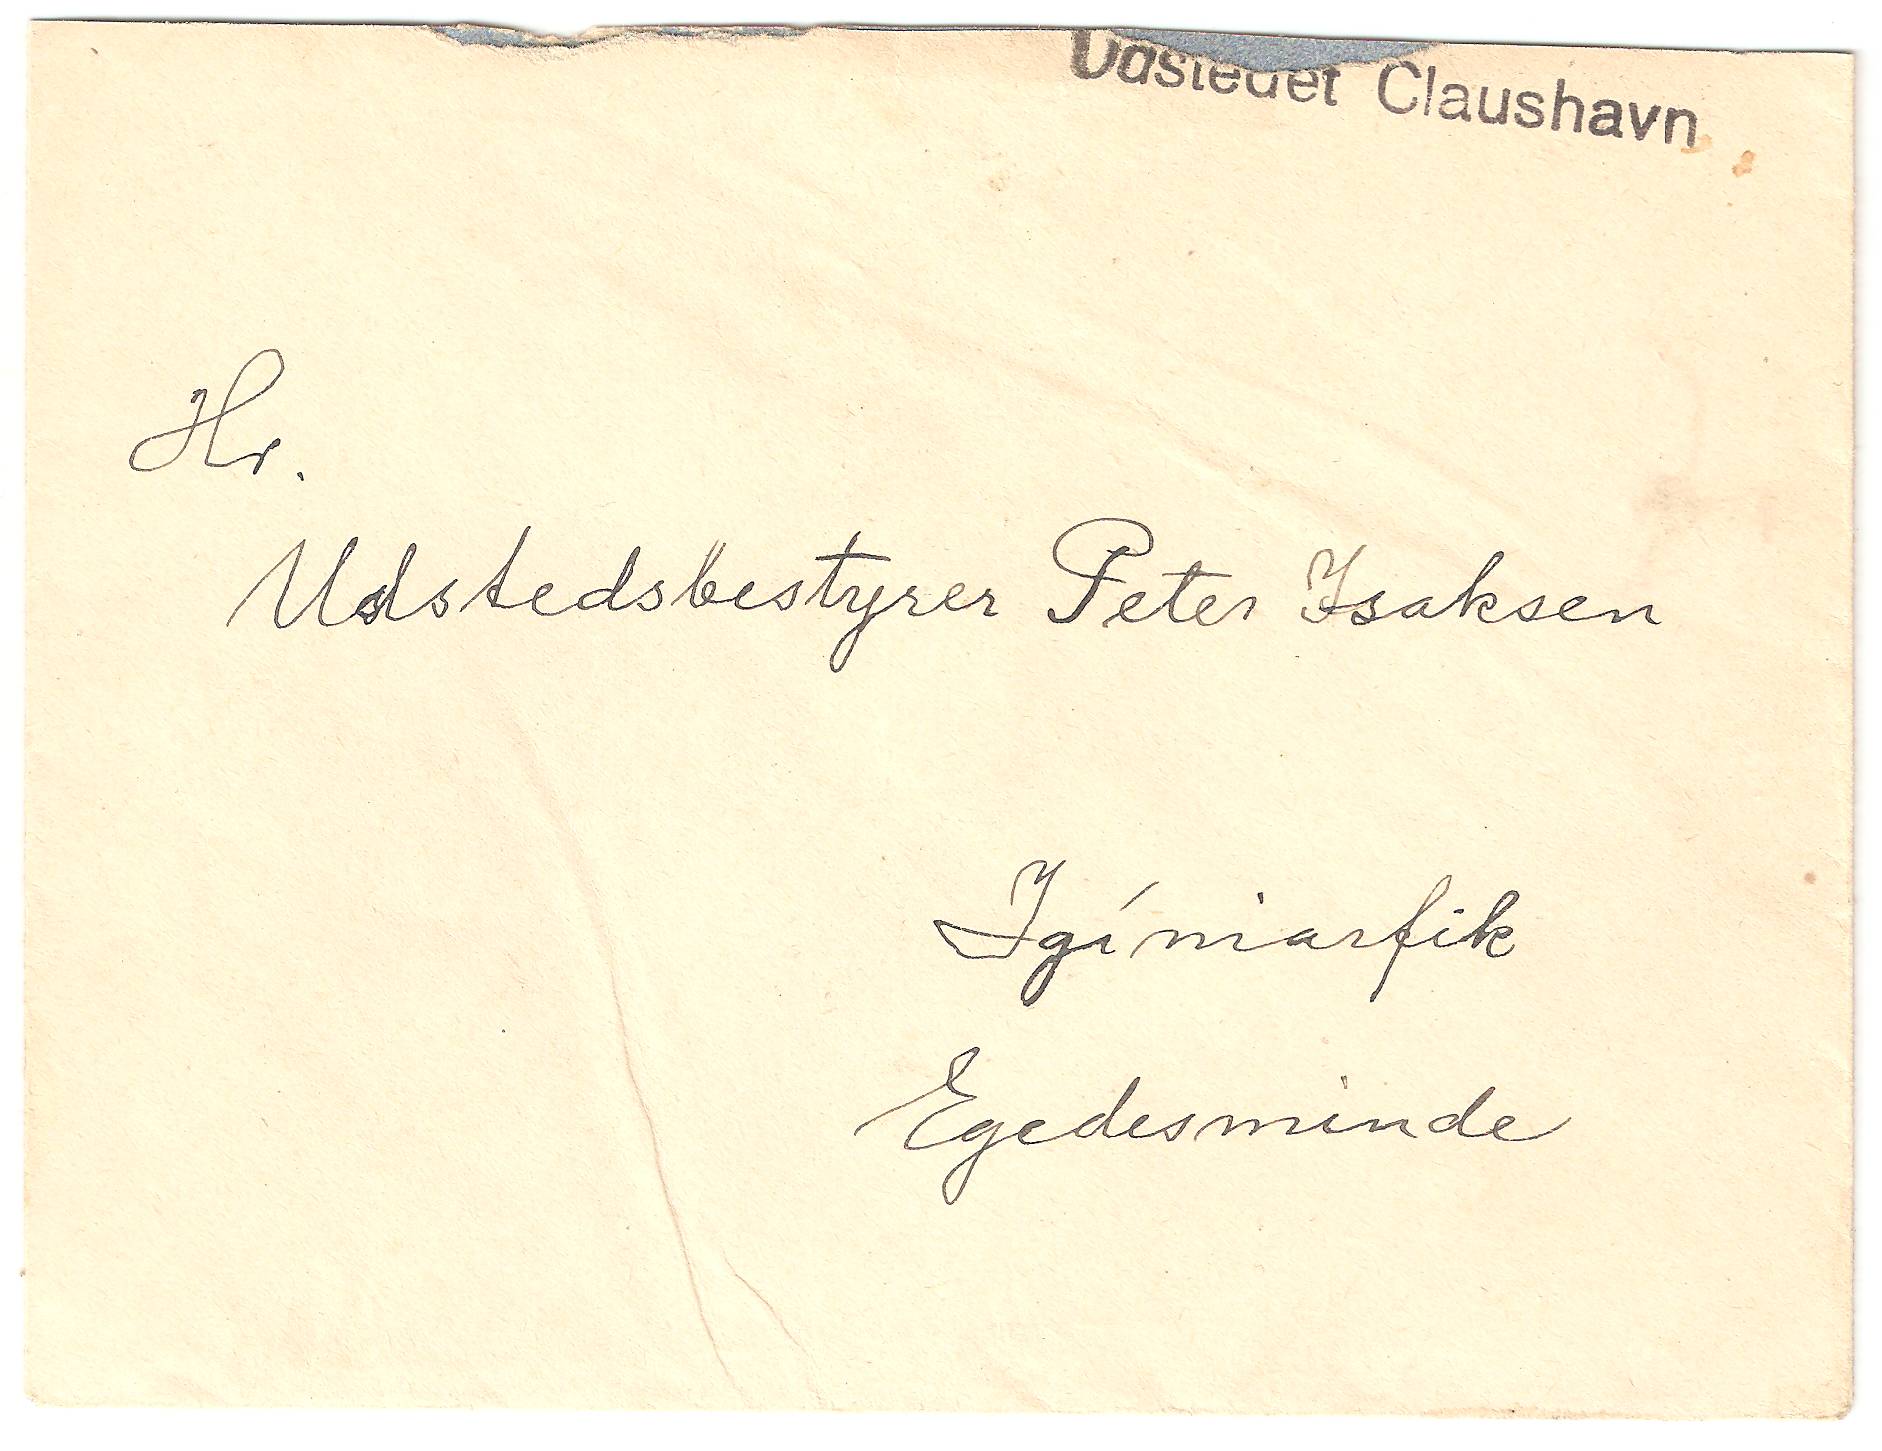 Udstedet Claushavn
Hr.
Udstedsbestyrer Peter Isaksen
Igíniarfik
Egedesminde